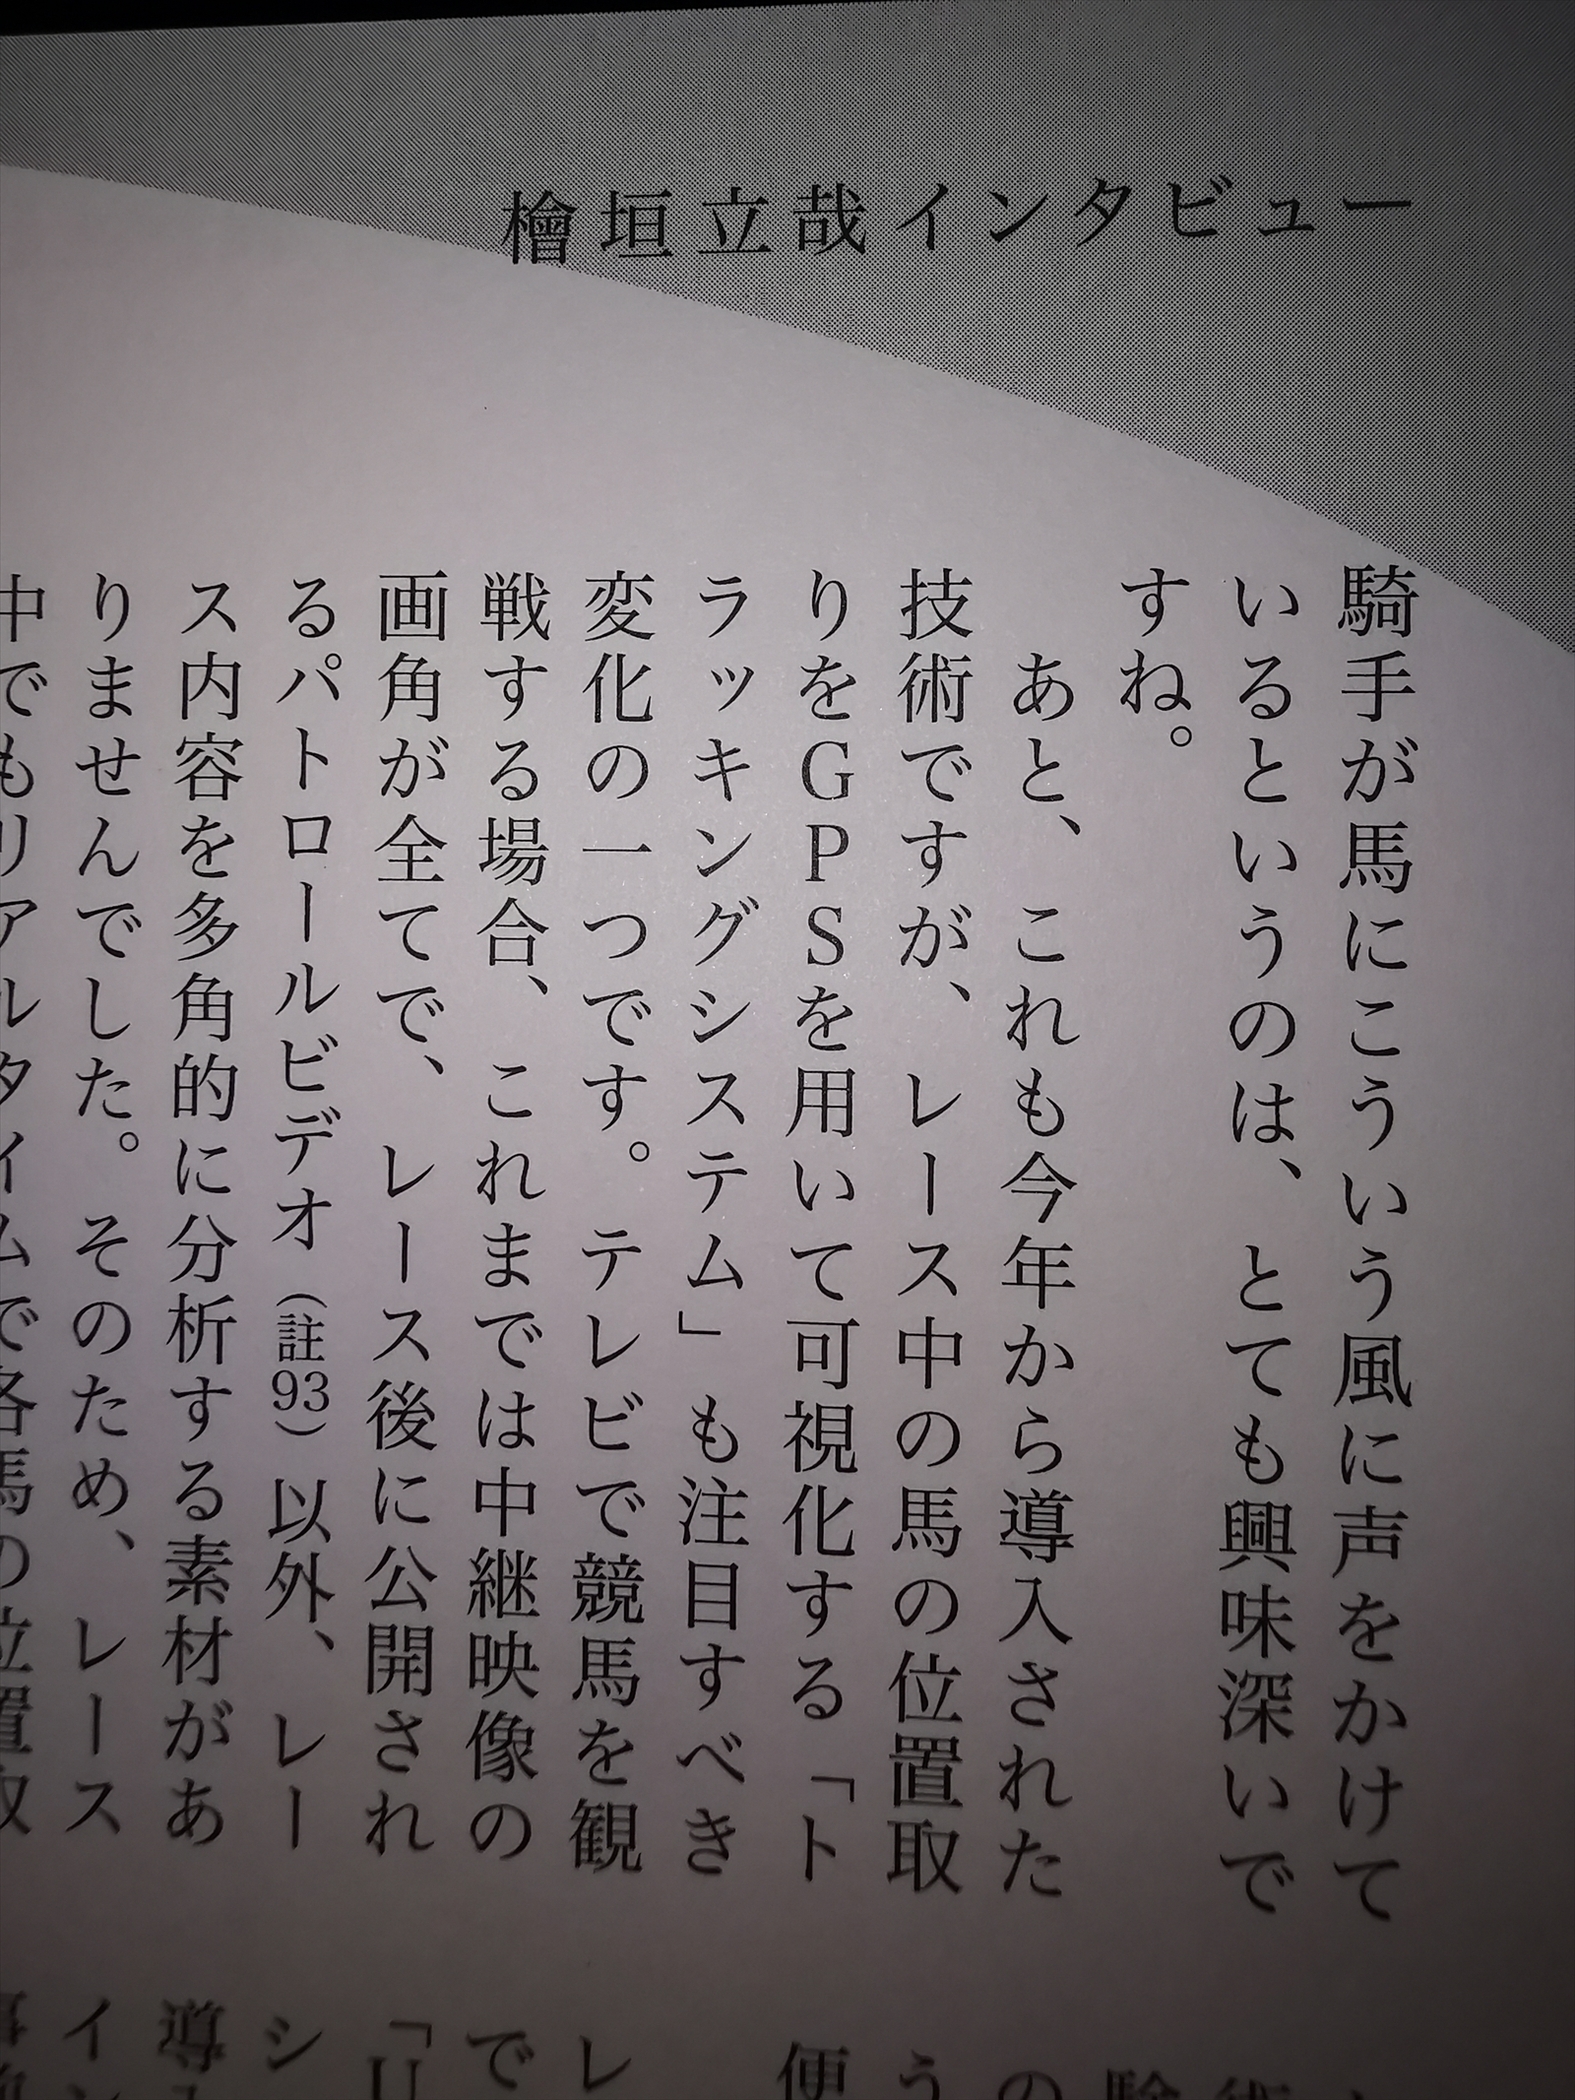 檜垣立哉インタビュー
騎手が馬にこういう風に声をかけて
いるというのは、とても興味深いで
すね。
あと、これも今年から導入された
技術ですが、レース中の馬の位置取
りをGPSを用いて可視化する「ト
ラッキングシステム」も注目すべき
変化の一つです。テレビで競馬を観
戦する場合、これまでは中継映像の
画角が全てで、レース後に公開され
るパトロールビデオ（註93）以外、レー
ス内容を多角的に分析する素材があ
りませんでした。そのため、レース
中でもリアルタイムで各馬の位置取
う
便
レ
で
「U
シ
導
イン